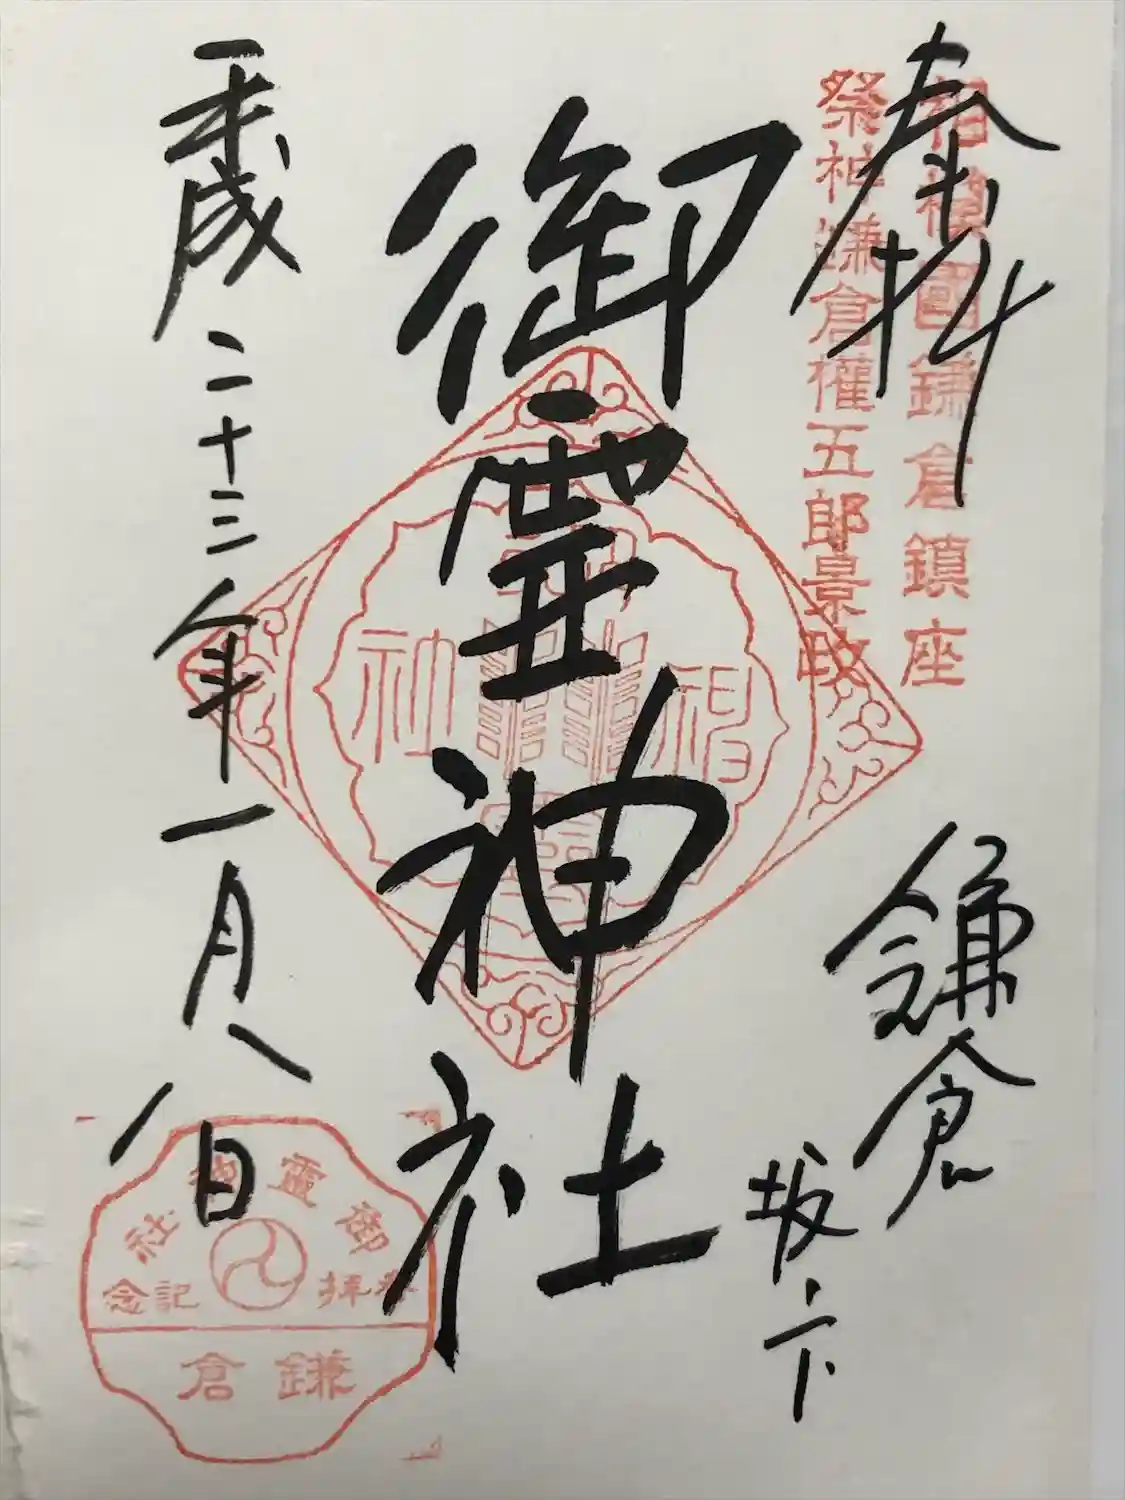 奉拝
相模國鎌倉鎮座
祭神鎌倉權五郎景政
鎌倉
坂ノ下
御霊神社
平成二十三年一月八日
御靈神社
奉拝
記念
鎌倉